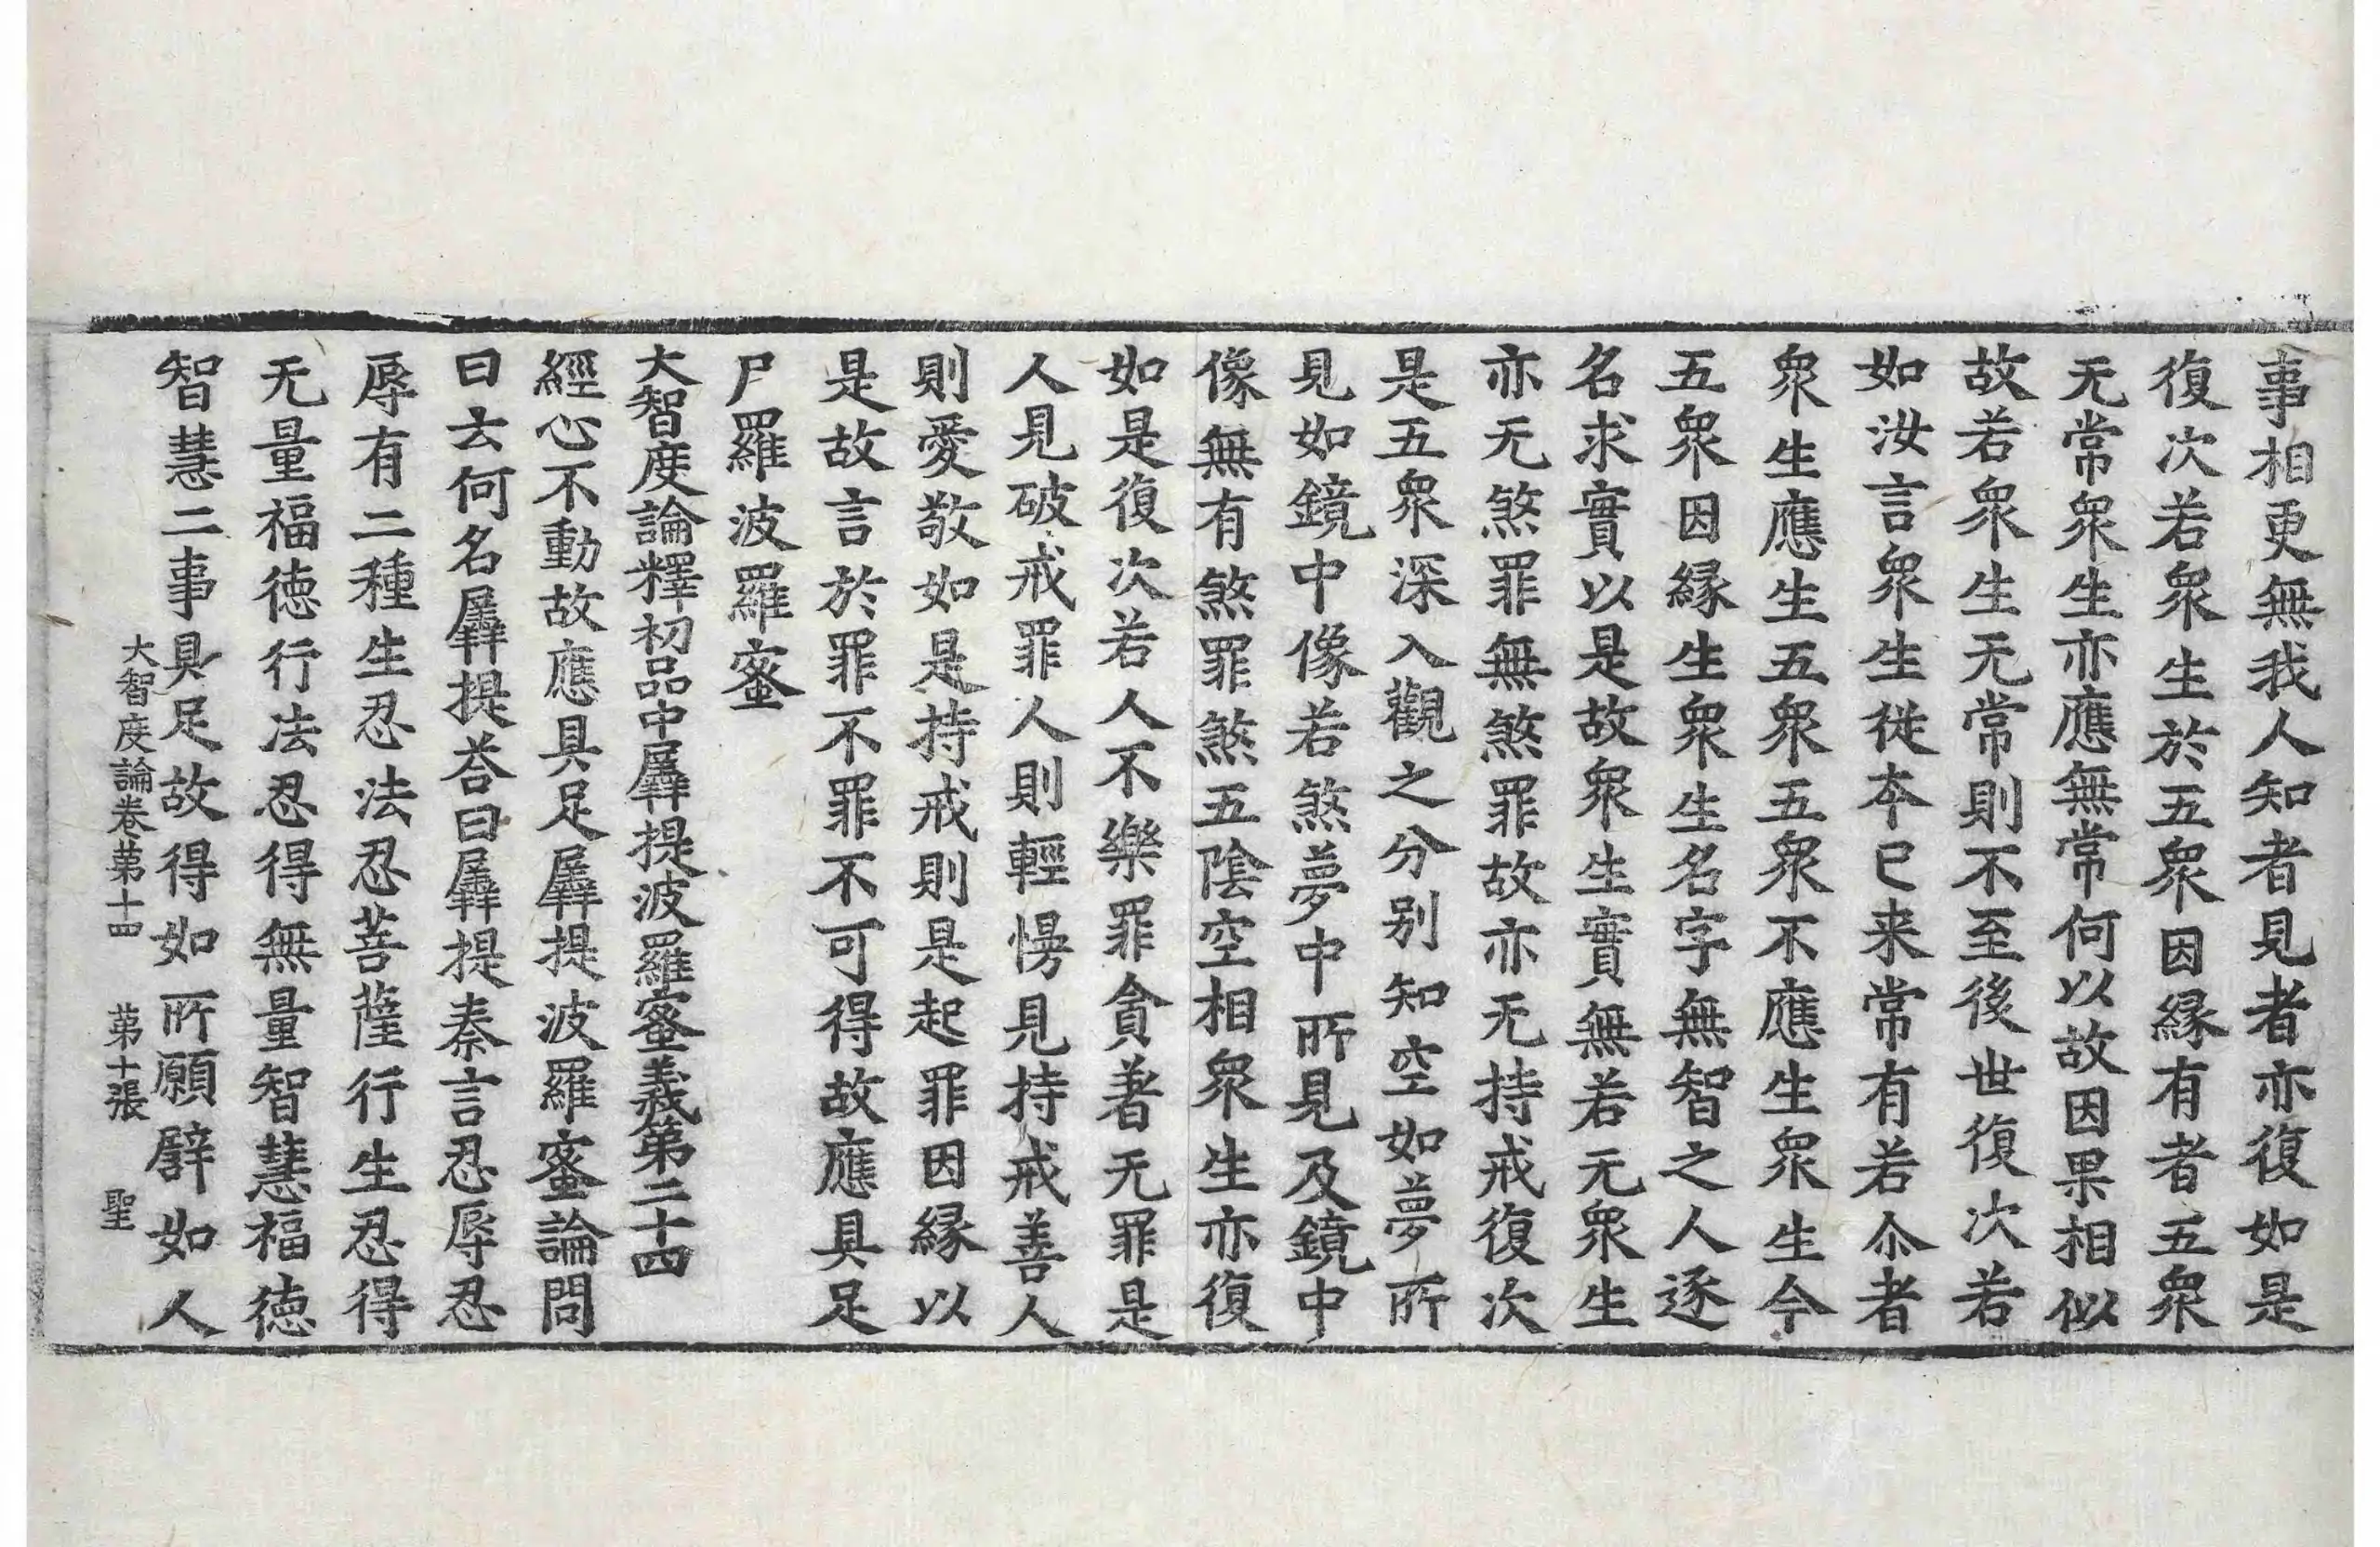 事相更無我人知者見者亦復如是
復次若衆生於五衆因縁有者五衆
无常衆生亦應無常何以故因果相似
故若衆生无常則不至後世復次若
如汝言衆生從本已来常有若尒者
衆生應生五衆五衆不應生衆生今
五衆因縁生衆生名字無智之人逐
名求實以是故衆生實無若无衆生
亦无煞罪無煞罪故亦无持戒復次
是五衆深入觀之分别知空如夢所
見如鏡中像若煞夢中所見及鏡中
像無有煞罪煞五陰空相衆生亦復
如是復次若人不樂罪貪著无罪是
人見破戒罪人則輕慢見持戒善人
則愛敬如是持戒則是起罪因縁以
是故言於罪不罪不可得故應具足
尸羅波羅蜜
大智度論釋初品中羼提波羅蜜義第二十四
經心不動故應具足羼提波羅蜜論問
曰云何名羼提荅曰羼提秦言忍辱忍
辱有二種生忍法忍菩薩行生忍得
无量福徳行法忍得無量智慧福徳
智慧二事具足故得如所願譬如人
大智度論卷第十四 第十張 聖